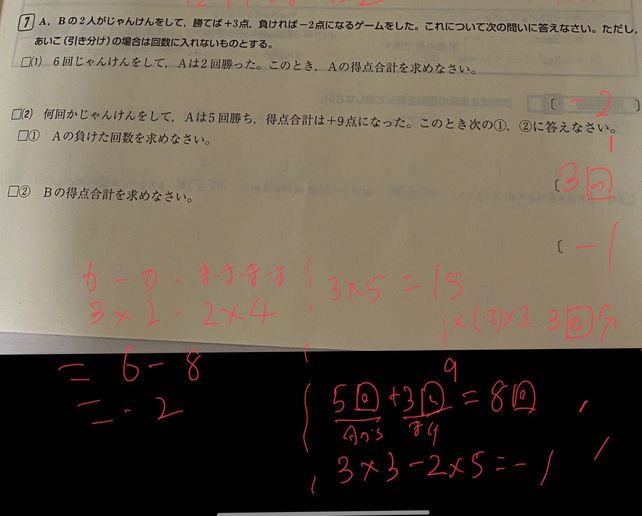 7 A，Bの2人がじゃんけんをして，勝てば＋3点，負ければ－2点になるゲームをした。これについて次の問いに答えなさい。ただし，
あいこ（引き分け）の場合は回数に入れないものとする。
□(1) 6回じゃんけんをして，Aは2回勝った。このとき，Aの得点合計を求めなさい。
[ －2 ]
□(2) 何回かじゃんけんをして，Aは5回勝ち，得点合計は＋9点になった。このとき次の①，②に答えなさい。
□① Aの負けた回数を求めなさい。
[ 3回
□② Bの得点合計を求めなさい。
[ －1
3×2-2×4
=6-8
=-2
3×5=15
9
5回+3回=8回
3×3-2×5=-1